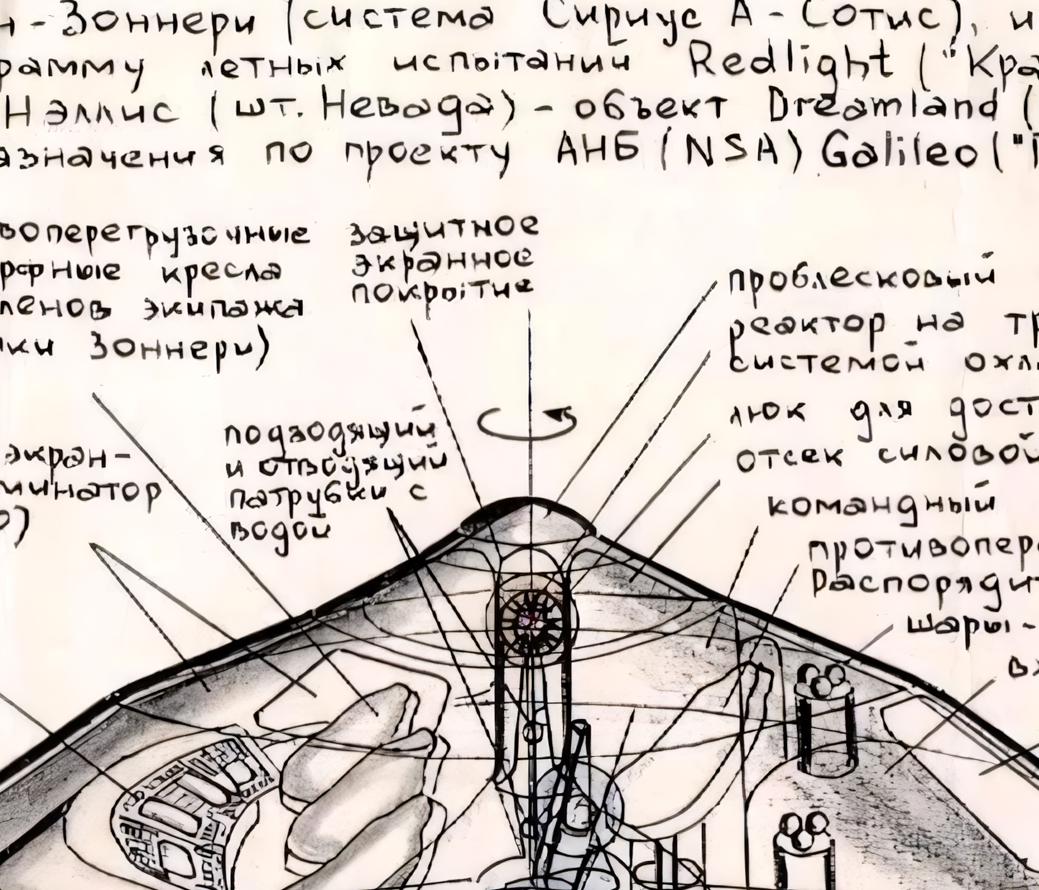 н-Зоннери (система Сириус А - Сотис), и
рамму летных испытаний Redlight ("Кра
Нэллис (шт. Невада) - объект Dreamland (
азначения по проекту АНБ (NSA) Galileo ("Г
воперегрузочные
рорные кресла
ленов экипажа
ики Зоннери)
защитное
экранное
покрытие
экран-
минатор
о)
подводящий
и отводящий
патрубки с
водой
проблесковый
реактор на тр
системой охл
люк для дост
отсек силовой
командный
противопер
Распоряди
шары-
вх